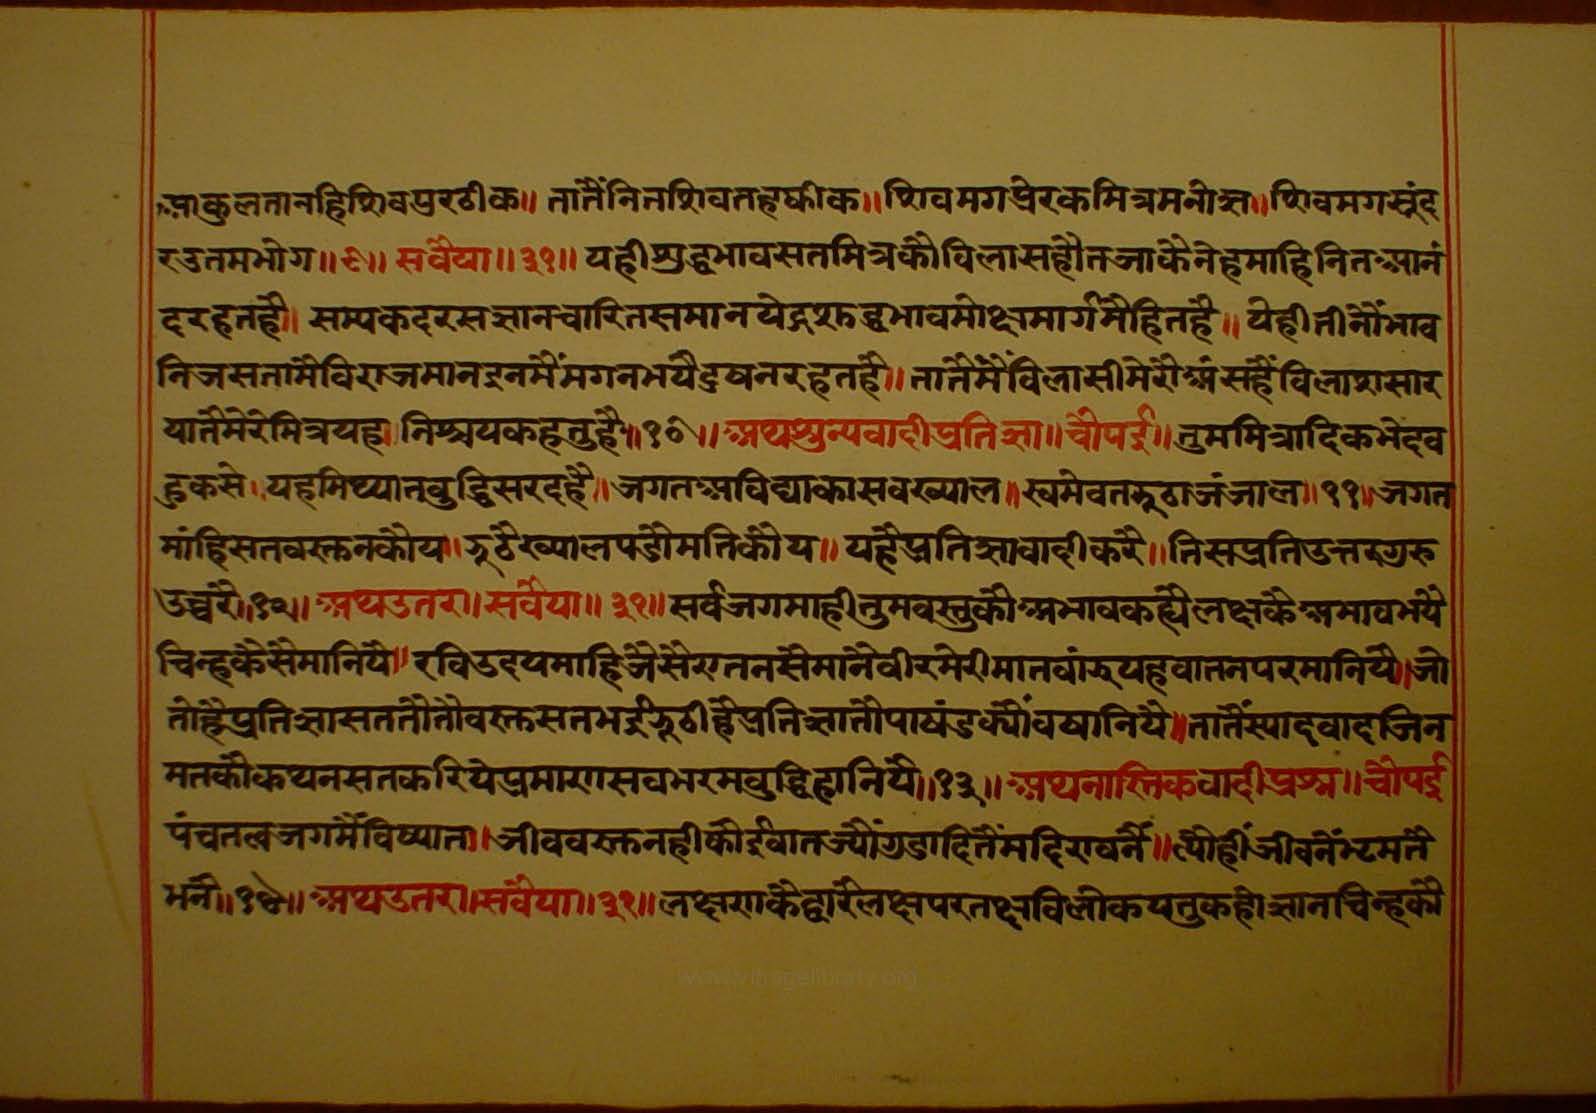 आकुलतानहिशिवपुरठीक॥ तातैंनितशिवतहकीक॥ शिवमगप्रेरकमित्रमनोज्ञ॥ शिवमगसूंद
रउतमभोग॥९॥ सवैया॥३१॥ यहीशुद्धभावसतमित्रकौविलासहौतजाकैनेहमाहिनितआनं
दरहतहै॥ सम्यकदरसज्ञानचारितसमानयेइशुद्धभावमोक्षमार्गमैहितहै॥ येहीतीनौंभाव
निजसतामैविराजमानइनमैंमगनभयैदुषनरहतहै॥ तातैमैंविलासीमेरौअंसहैंविलाशसार
यातैमेरेमित्रयह। निश्चयकहतुहै॥१०॥ अथशुन्यवादीप्रतिज्ञा॥ चौपई॥ तुममित्रादिकभेदव
हुकसे। यहमिथ्यातवुद्धिसरदहै॥ जगतअविद्याकासवख्याल॥ स्वमेवतझुठाजंजाल॥११॥ जगत
मांहिसतवस्तनकौय॥ झुठैख्यालपडौमतिकौय॥ यहैप्रतिज्ञावादीकरै॥ तिसप्रतिउत्तरगुरु
उच्चरै॥१२॥ अथउतर॥ सवैया॥ ३१॥ सर्वजगमाहीतुमवस्तुकौअभावकह्यैलक्षकैअभावभयै
चिन्हकैसैमानियै॥ रविउदयमाहिजैसैरातनसैमानैवीरमेरीमातवांझयहवातनपरमानियै॥ जो
तोहैप्रतिज्ञासततौतौवस्तसतभईझूठीहैप्रतिज्ञातौपाषंडक्यौंवषानियै॥ तातैंस्याद्वादजिन
मतकौकथनसतकरियेप्रमाणसवभरमवुद्धिहानियै॥१३॥ अथनास्तिकवादीप्रश्न॥ चौपई
पंचतत्वजगमैंविष्यात॥ जीववस्तनहीकोईवातज्यौंगुडादितैंमदिरावनैं॥ त्यौहींजीवनैंभटमतै
भनै॥१४॥ अथउतर॥ सवैया॥३१॥ लक्षणकैद्वारैलक्षपरतक्षविलोकयतुकहोज्ञानचिन्हकौ
www.vitragelibrary.org